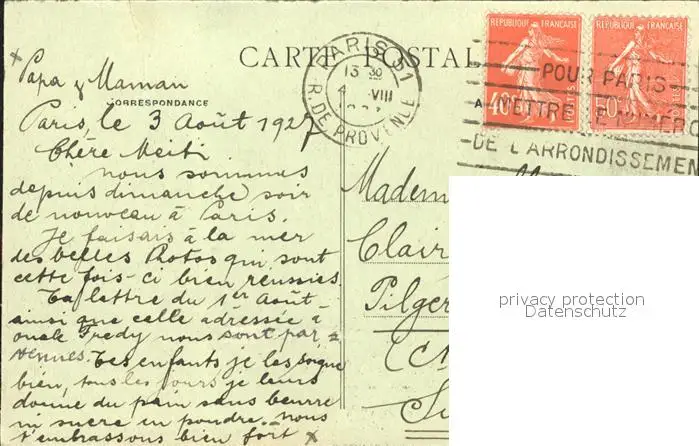 CARTE POSTALE
PARIS 31
13 30
4 VIII
R. DE PROVENCE
REPUBLIQUE FRANÇAISE
REPUBLIQUE FRANÇAISE
40c
50c
POUR PARIS
METTRE LE NUMERO
DE L'ARRONDISSEMEN
x
Papa & Maman
CORRESPONDANCE
Paris, le 3 Août 1927
Chère Meiti
nous sommes
depuis dimanche soir
de nouveau à Paris.
Je faisais à la mer
des belles Photos qui sont
cette fois-ci bien réussies.
Ta lettre du 1er Août
ainsi que celle adressée à
oncle Fredy nous sont par=
venues. Tes enfants je les soigne
bien, tous les jours je leurs
donne du pain sans beurre
ni sucre en poudre. Nous
t'embrassons bien fort x
Madem
Clair
Pilger
privacy protection
Datenschutz